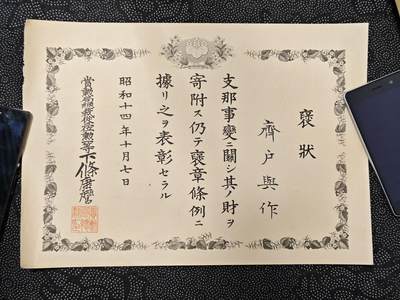 褒狀
齊戸與作
支那事變ニ關シ其ノ財ヲ
寄附ス仍テ褒章條例ニ
據リ之ヲ表彰セラル
昭和十四年十月七日
賞勳局總裁從三位勳二等下條康麿